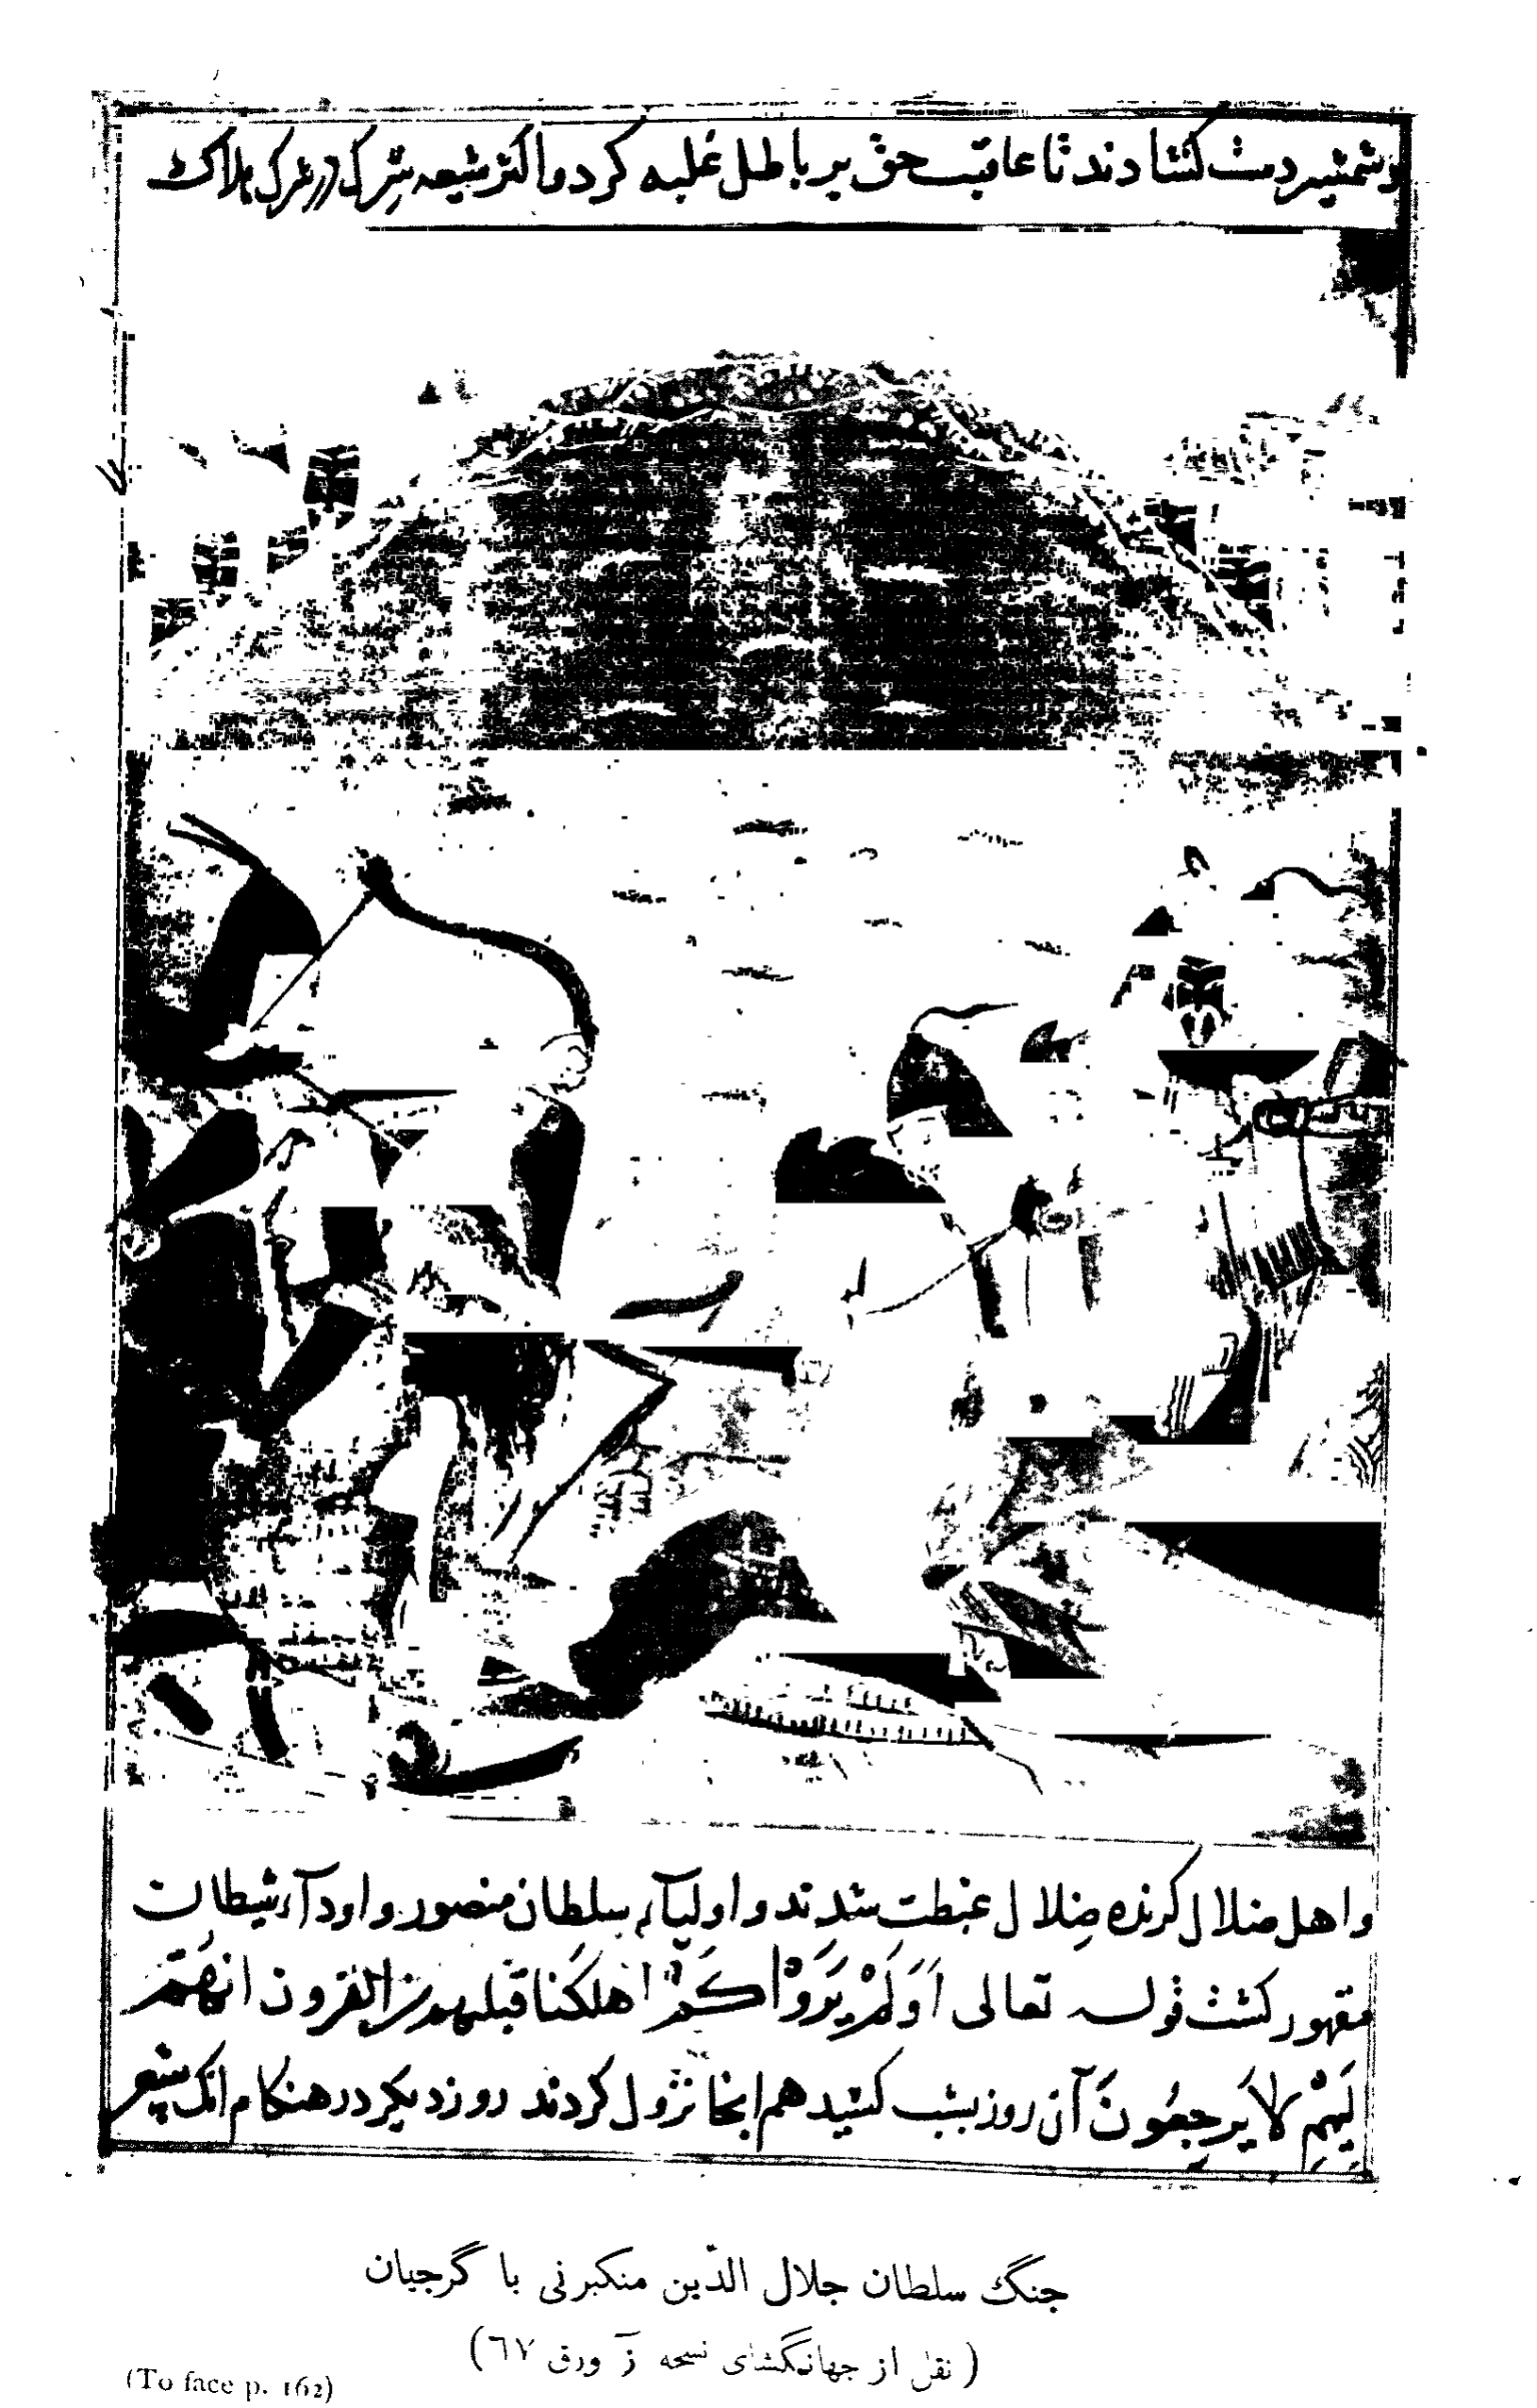 وشمشیر دست کشادند تا عاقبت حق بر باطل غلبه کرد و اکثر شیعه شرک در عرک هلاک
واهل ضلال کرنده ضلال غبطت شدند و اولیآء سلطان منصور و اودآء شیطان
مقهور کشت قوله تعالی اَوَلَمْ یَرَوْا کَمْ اهلکنا قبلهم من القرون انهم
لَیهِمْ لا یَرجِعُونَ آن روز بشب کشید هم انجا نزول کردند روز دیکر در هنکام انک
جنگ سلطان جلال الدّین منکبرنی با گرجیان
( نقل از جهانگشای نسخه زَ ورق ٦٧)
(To face p. 162)